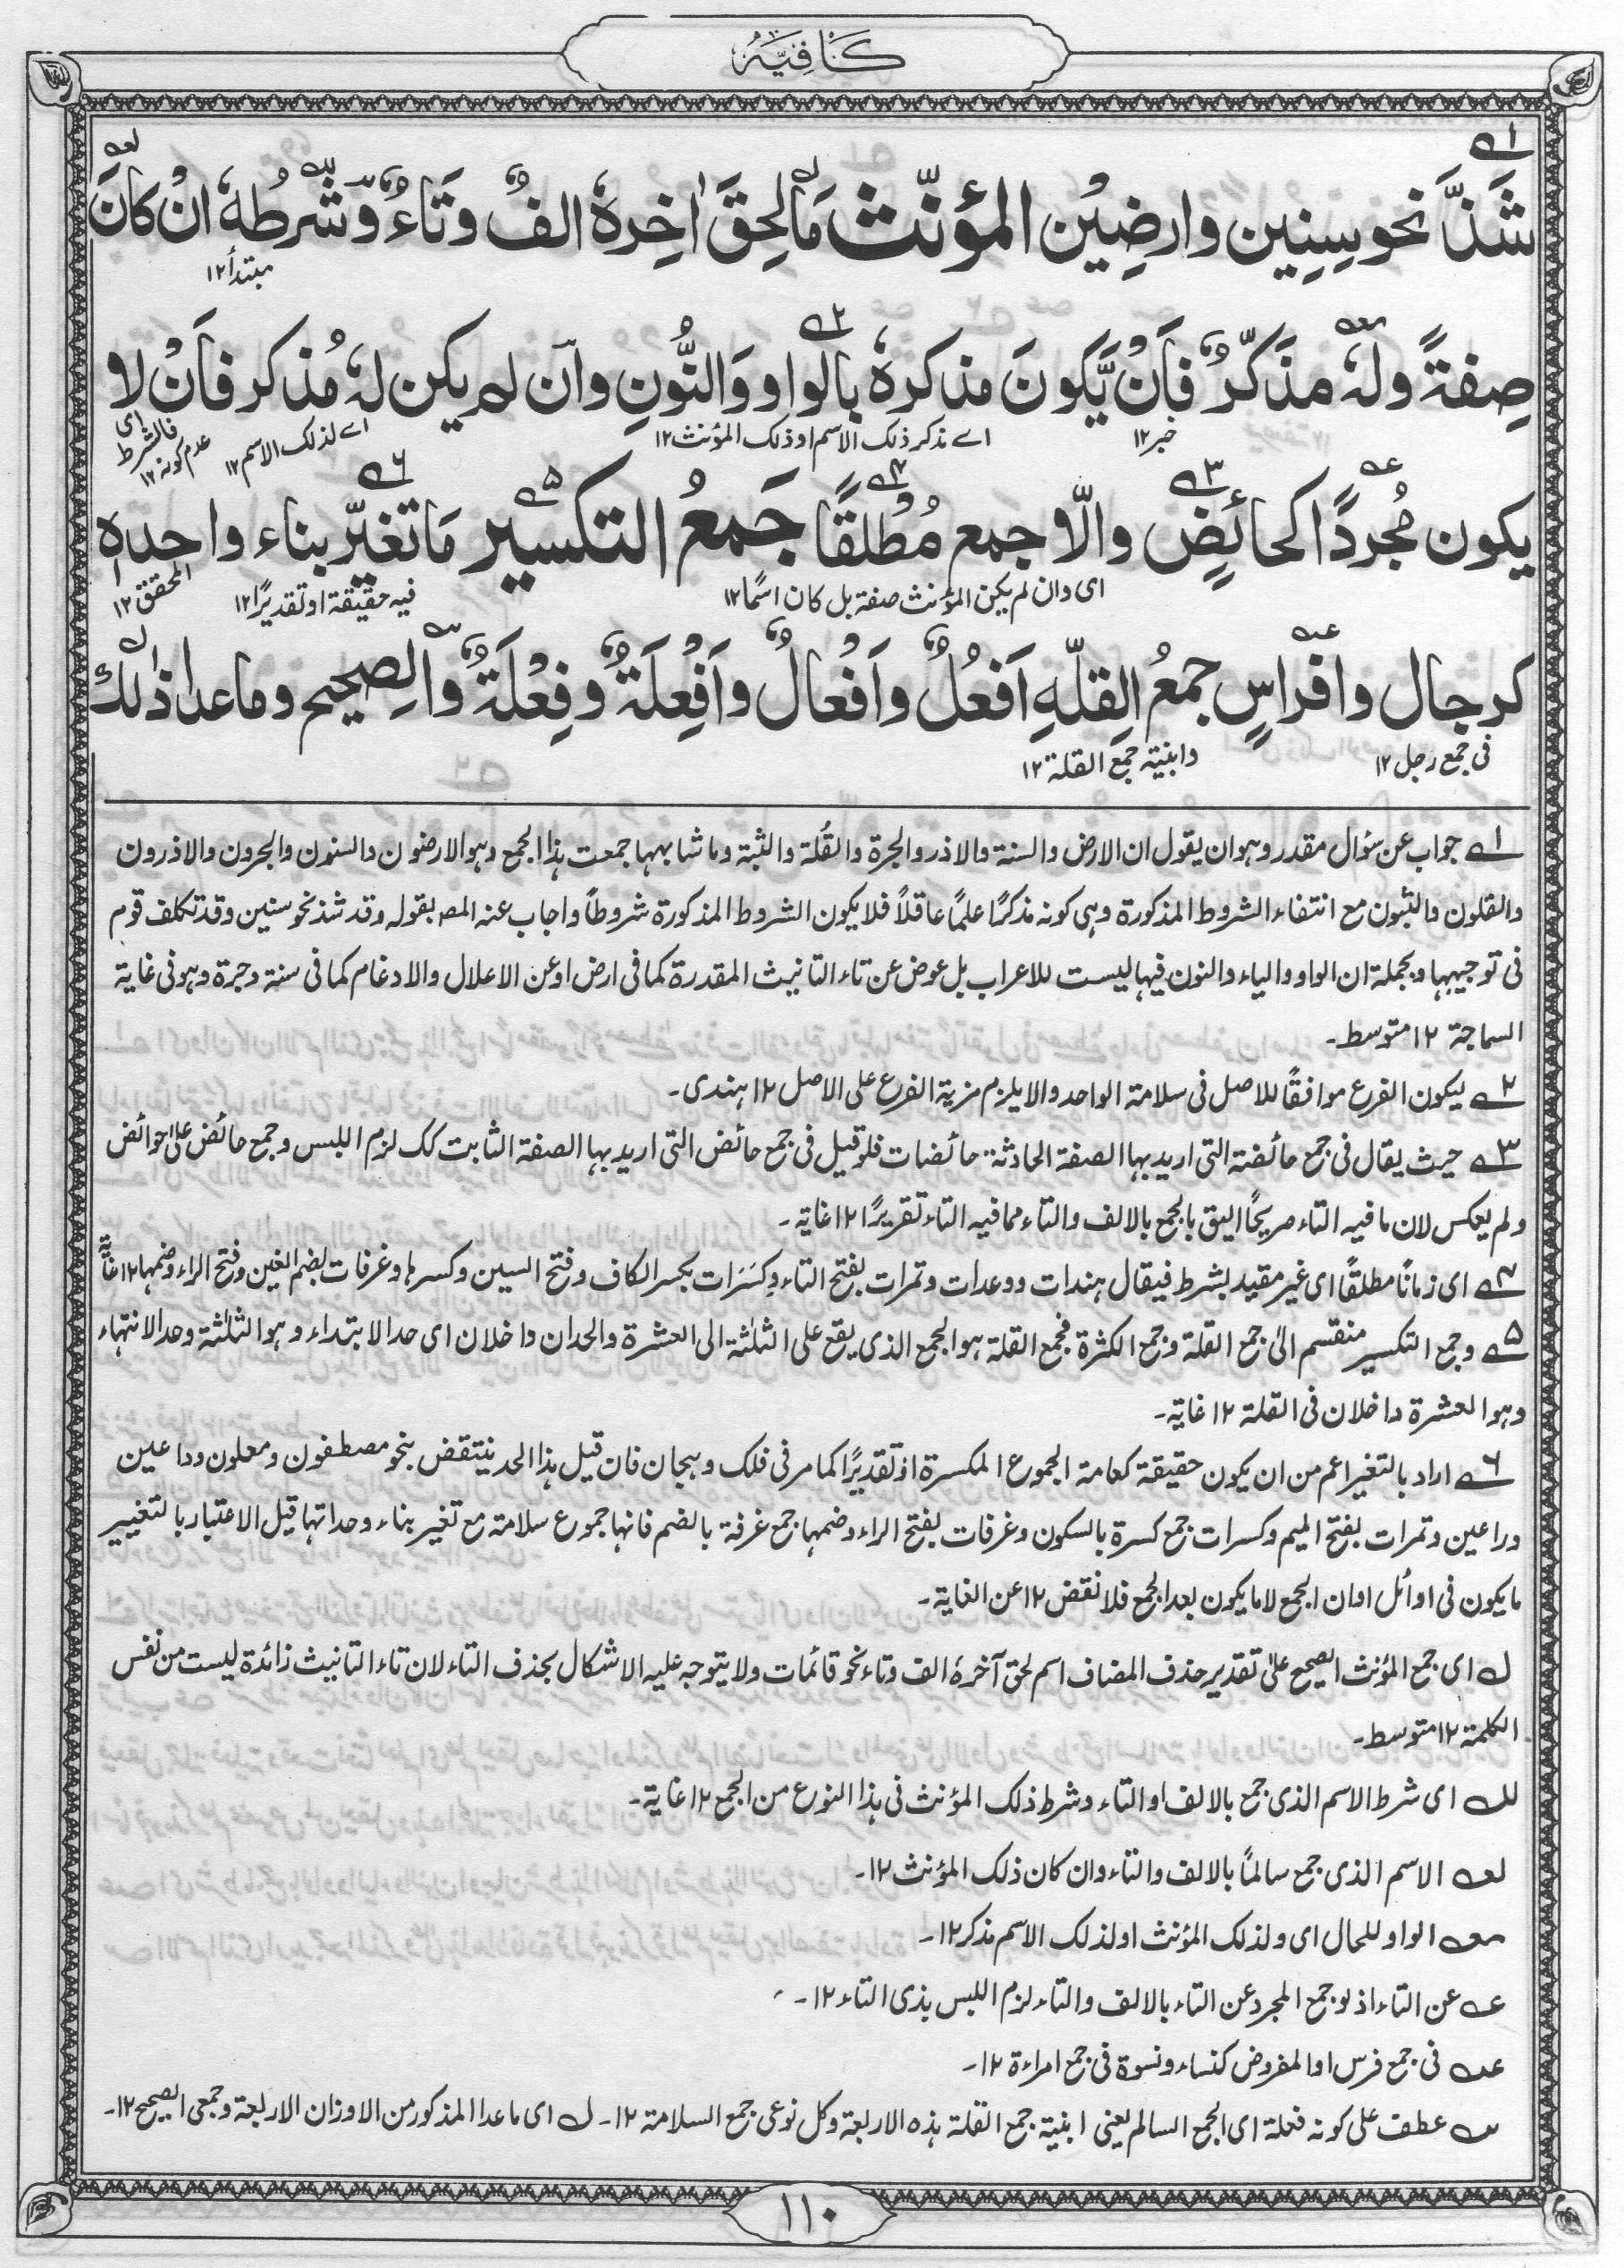 كَافِيَه
شَذَّ نحو سِنِين وارضِيْن المؤنّث مَا لحِقَ اٰخِرهٗ الفٌ وتَاءٌ وّشَرطُهٗ انْ كانَ
مبتدأ ١٢
صِفةً ولهٗ مذكّرٌ فاَنْ يَّكونَ مذكرهٗ بالواو وَالنُّونِ واۤن لم يكن لهٗ مُذكر فاَنْ لا
خبر ١٢
اے مذكر ذلك الاسم او ذلك المؤنث ١٢
اے لذلك الاسم ١٢
فالشرط اى عدم كونه ١٢
يكون مُجردًا كحائضٍ والّا جمع مُطْلقًا جَمعُ التكسير مَا تغيّر بناء واحدهٖ
اى وان لم يكن المؤنث صفة بل كان اسمًا ١٢
فيه حقيقة او تقديرًا ١٢
المحقق ١٢
كرجال وافراسٍ جمعُ القِلّهِ اَفعُلٌ واَفْعالٌ واَفْعِلَةٌ وفِعْلَةٌ والصحيح وما عدا ذٰلك
فى جمع رجل ١٢
وابنية جمع القلة ١٢
١ے جواب عن سؤال مقدر وهو ان يقول ان الارض والسنة والاذر والجرة والقُلة والثبة وما شابهها جمعت هذا الجمع وهو الارضون والسنون والجرون والاذرون
والقلون والثبون مع انتفاء الشروط المذكورة وهى كونه مذكرًا علمًا عاقلاً فلا يكون الشروط المذكورة شروطاً واجاب عنه المصـ بقوله وقد شذ نحو سنين وقد تكلف قوم
فى توجيهها وبجملة ان الواو والياء والنون فيها ليست للاعراب بل عوض عن تاء التانيث المقدرة كما فى ارض او عن الاعلال والادغام كما فى سنة وجرة وهو فى غاية
السماجة ١٢ متوسط۔
٢ے ليكون الفرع موافقًا للاصل فى سلامة الواحد والا يلزم مزية الفرع على الاصل ١٢ هندى۔
٣ے حيث يقال فى جمع حائضة التى اريد بها الصفة الحادثة حائضات فلو قيل فى جمع حائض التى اريد بها الصفة الثابت كك لزم اللبس وجمع حائض على حوائض
ولم يعكس لان ما فيه التاء صريحًا اليق بالجمع بالالف والتاء مما فيه التاء تقريرًا ١٢ غاية۔
٤ے اى زمانًا مطلقًا اى غير مقيد بشرط فيقال هندات ووعدات وتمرات بفتح التاء وكِسَرَات بكسر الكاف وفتح السين وكسرها وغرفات بضم الغين وفتح الراء وضمها ١٢ غاية
٥ے وجمع التكسير منقسم الىٰ جمع القلة وجمع الكثرة فجمع القلة هو الجمع الذى يقع على الثلثة الى العشرة والحدان داخلان اى حد الابتداء وهو الثلثة وحد الانتهاء
وهو العشرة داخلان فى القلة ١٢ غاية۔
٦ے اراد بالتغير اعم من ان يكون حقيقة كعامة الجموع المكسرة او تقديرًا كما مر فى فلك وهجان فان قيل هذا الحد ينتقض بنحو مصطفون ومعلون وداعين
وراعين وتمرات بفتح الميم وكسرات جمع كسرة بالسكون وغرفات بفتح الراء وضمها جمع غرفة بالضم فانها جموع سلامة مع تغير بناء وحداتها قيل الاعتبار بالتغيير
ما يكون فى اوائل اوان الجمع لا ما يكون بعد الجمع فلا نقض ١٢ عن الغاية۔
لـ اى جمع المؤنث الصحيح علىٰ تقدير حذف المضاف اسم لحق آخرهٗ الف وتاء نحو قائمات ولا يتوجه عليه الاشكال بحذف التاء لان تاء التانيث زائدة ليست من نفس
الكلمة ١٢ متوسط۔
للـ اى شرط الاسم الذى جمع بالالف او التاء وشرط ذلك المؤنث فى هذا النوع من الجمع ١٢ غاية۔
لعـ الاسم الذى جمع سالمًا بالالف والتاء وان كان ذلك المؤنث ١٢۔
معـ الواو للحال اى ولذلك المؤنث او لذلك الاسم مذكر ١٢۔
عـ عن التاء اذ لو جمع المجرد عن التاء بالالف والتاء لزم اللبس بذى التاء ١٢۔
عـ فى جمع فرس او المفروض كنساء ونسوة فى جمع امراءة ١٢۔
سـ عطف على كونه فعلة اى الجمع السالم يعنى ابنية جمع القلة هذه الاربعة وكل نوعى جمع السلامة ١٢۔ لـ اى ما عدا المذكور من الاوزان الاربعة وجمعى الصحيح ١٢۔
١١٠